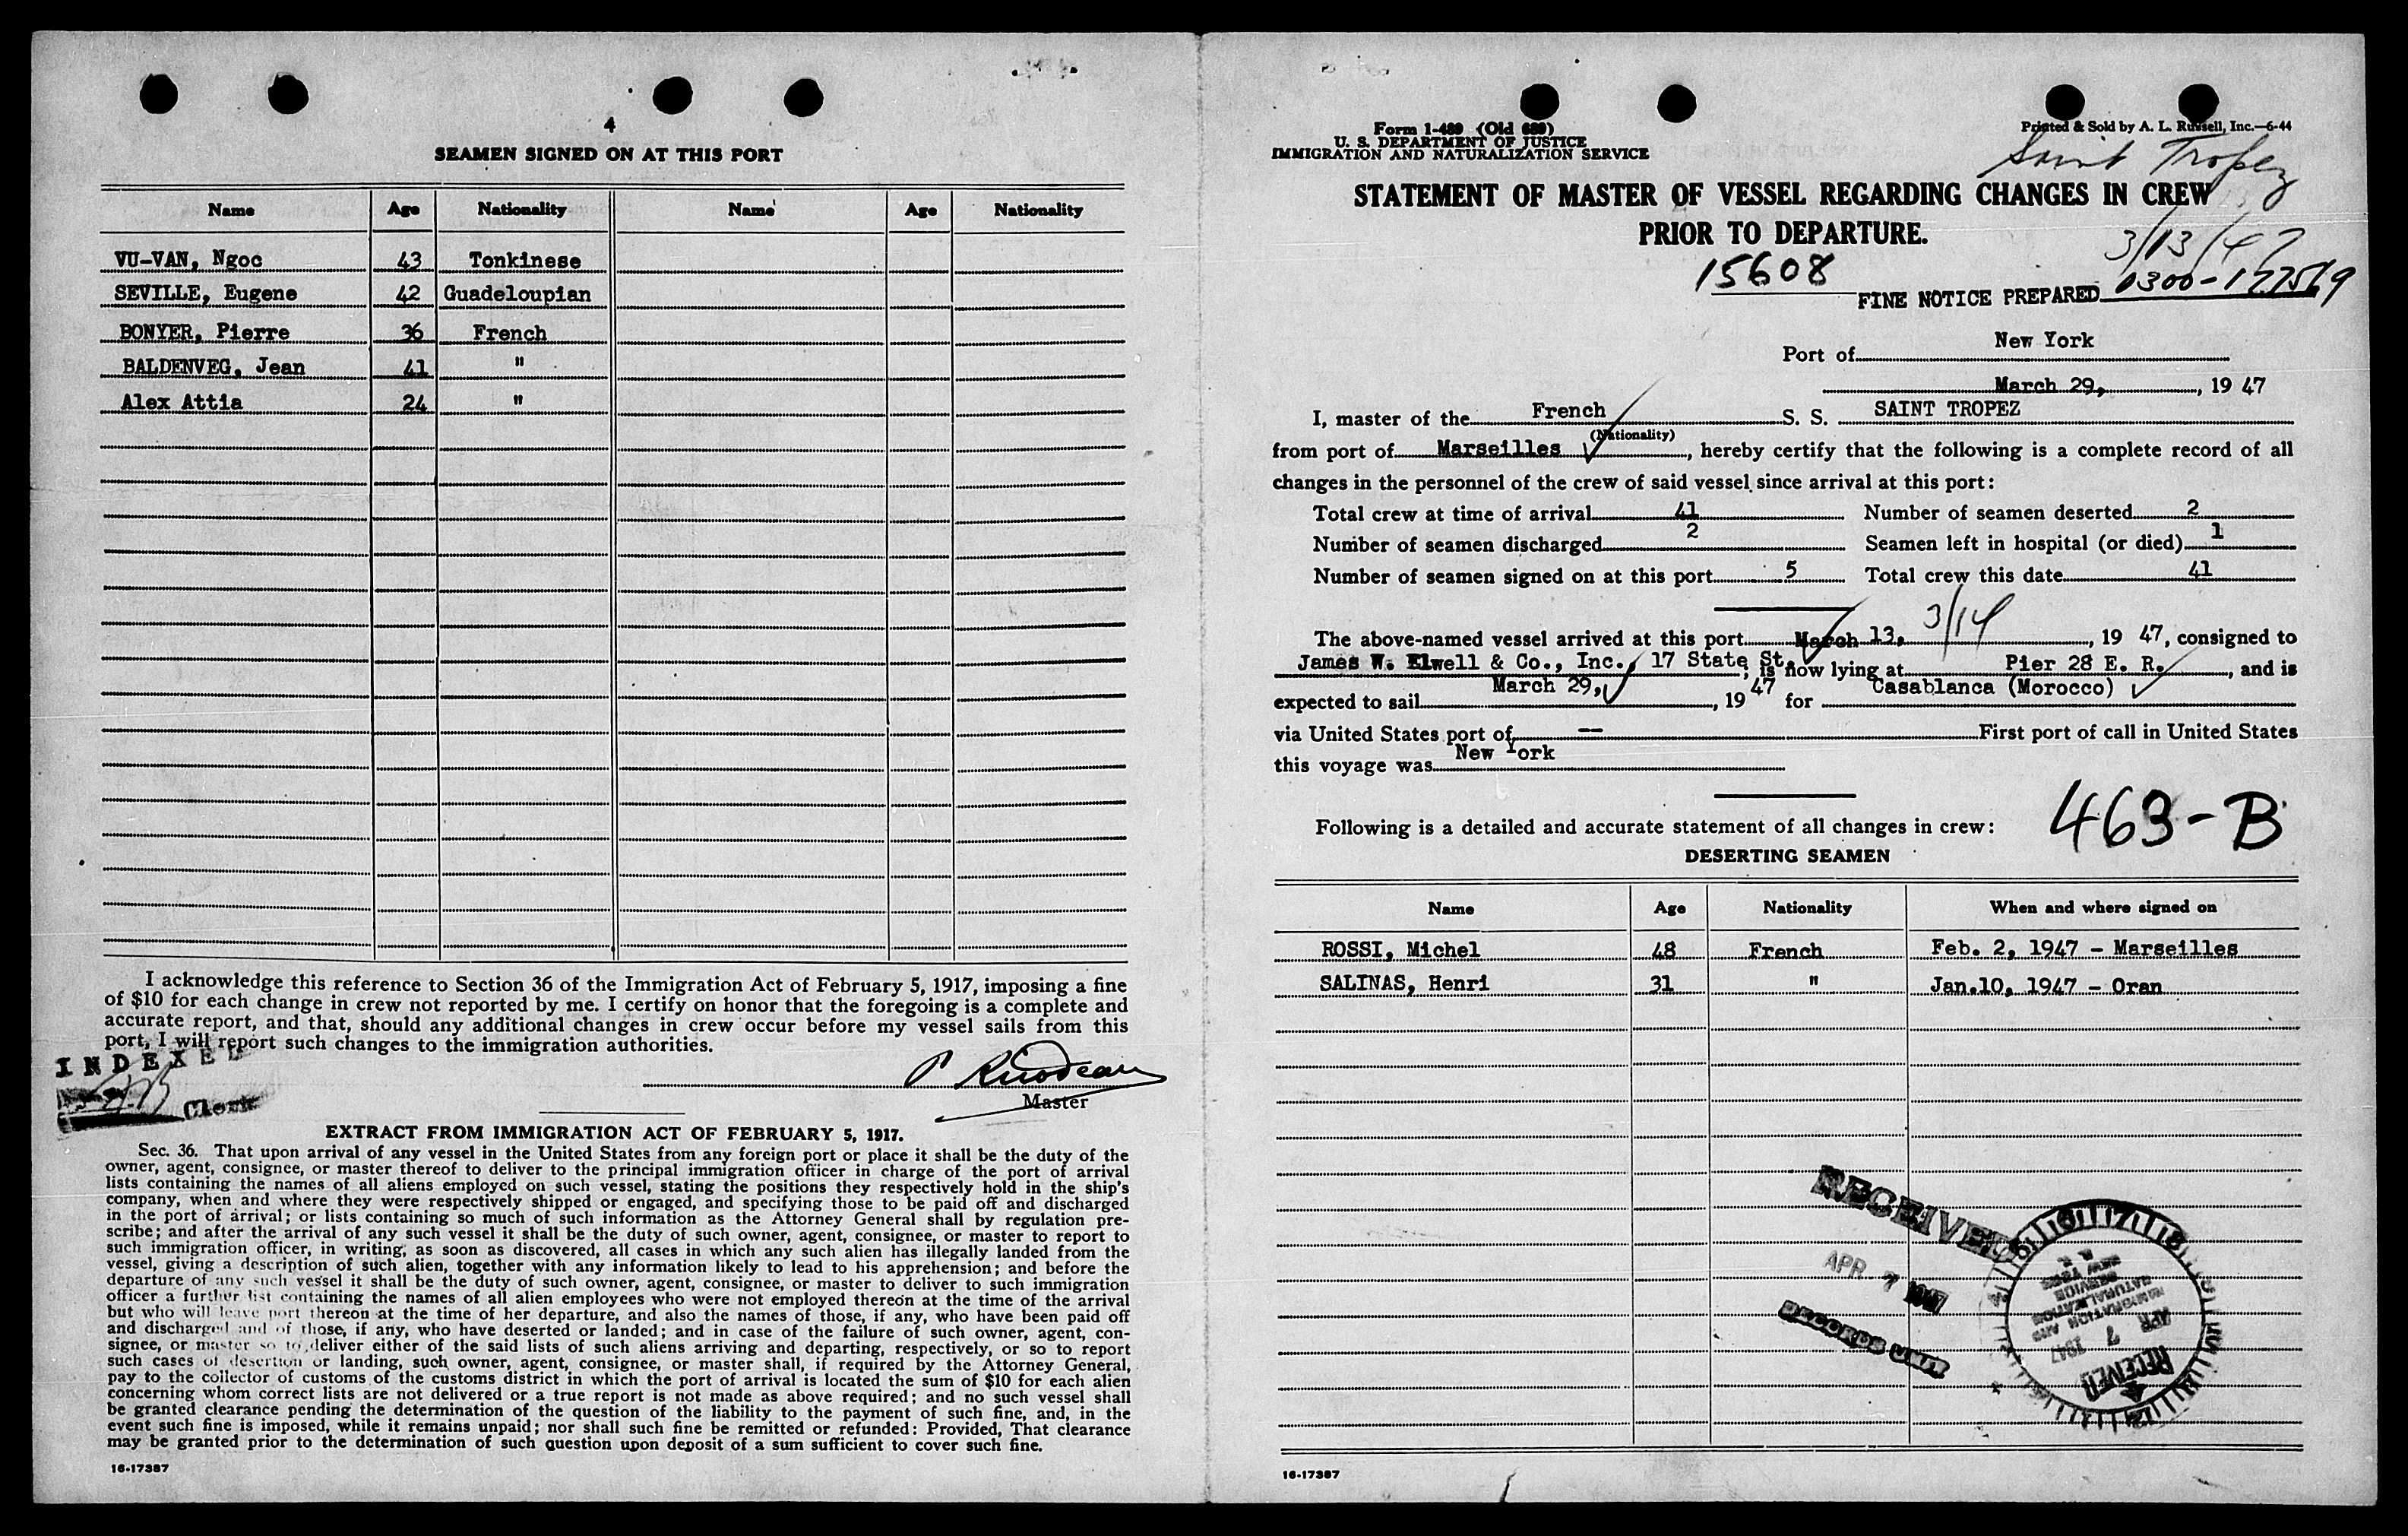 4
SEAMEN SIGNED ON AT THIS PORT
Name Age Nationality Name Age Nationality
VU-VAN, Ngoc 43 Tonkinese
SEVILLE, Eugene 42 Guadeloupian
BONYER, Pierre 36 French
BALDENVEG, Jean 41 "
Alex Attia 24 "
I acknowledge this reference to Section 36 of the Immigration Act of February 5, 1917, imposing a fine
of $10 for each change in crew not reported by me. I certify on honor that the foregoing is a complete and
accurate report, and that, should any additional changes in crew occur before my vessel sails from this
port, I will report such changes to the immigration authorities.
INDEXED
Clerk
Master
EXTRACT FROM IMMIGRATION ACT OF FEBRUARY 5, 1917.
Sec. 36. That upon arrival of any vessel in the United States from any foreign port or place it shall be the duty of the
owner, agent, consignee, or master thereof to deliver to the principal immigration officer in charge of the port of arrival
lists containing the names of all aliens employed on such vessel, stating the positions they respectively hold in the ship's
company, when and where they were respectively shipped or engaged, and specifying those to be paid off and discharged
in the port of arrival; or lists containing so much of such information as the Attorney General shall by regulation pre-
scribe; and after the arrival of any such vessel it shall be the duty of such owner, agent, consignee, or master to report to
such immigration officer, in writing, as soon as discovered, all cases in which any such alien has illegally landed from the
vessel, giving a description of such alien, together with any information likely to lead to his apprehension; and before the
departure of any such vessel it shall be the duty of such owner, agent, consignee, or master to deliver to such immigration
officer a further list containing the names of all alien employees who were not employed thereon at the time of the arrival
but who will leave port thereon at the time of her departure, and also the names of those, if any, who have been paid off
and discharged and of those, if any, who have deserted or landed; and in case of the failure of such owner, agent, con-
signee, or master so to deliver either of the said lists of such aliens arriving and departing, respectively, or so to report
such cases of desertion or landing, such owner, agent, consignee, or master shall, if required by the Attorney General,
pay to the collector of customs of the customs district in which the port of arrival is located the sum of $10 for each alien
concerning whom correct lists are not delivered or a true report is not made as above required; and no such vessel shall
be granted clearance pending the determination of the question of the liability to the payment of such fine, and, in the
event such fine is imposed, while it remains unpaid; nor shall such fine be remitted or refunded: Provided, That clearance
may be granted prior to the determination of such question upon deposit of a sum sufficient to cover such fine.
16-17387
Form I-489 (Old 689)
U. S. DEPARTMENT OF JUSTICE
IMMIGRATION AND NATURALIZATION SERVICE
Printed & Sold by A. L. Russell, Inc.—6-44
Saint Tropez
STATEMENT OF MASTER OF VESSEL REGARDING CHANGES IN CREW
PRIOR TO DEPARTURE.
3/13/47
15608
FINE NOTICE PREPARED 0300-177519
Port of New York
March 29, 19 47
I, master of the French S. S. SAINT TROPEZ
(Nationality)
from port of Marseilles, hereby certify that the following is a complete record of all
changes in the personnel of the crew of said vessel since arrival at this port:
Total crew at time of arrival 41 Number of seamen deserted 2
Number of seamen discharged 2 Seamen left in hospital (or died) 1
Number of seamen signed on at this port 5 Total crew this date 41
3/14
The above-named vessel arrived at this port March 13, 19 47, consigned to
James W. Elwell & Co., Inc., 17 State St., is now lying at Pier 28 E. R., and is
expected to sail March 29, 19 47 for Casablanca (Morocco)
via United States port of — First port of call in United States
this voyage was New York
463-B
Following is a detailed and accurate statement of all changes in crew:
DESERTING SEAMEN
Name Age Nationality When and where signed on
ROSSI, Michel 48 French Feb. 2, 1947 - Marseilles
SALINAS, Henri 31 " Jan.10, 1947 - Oran
RECEIVED
APR 7 1947
RECORDS UNIT
RECEIVED
APR 7 1947
IMMIGRATION AND
NATURALIZATION
SERVICE
NEW YORK
16-17387